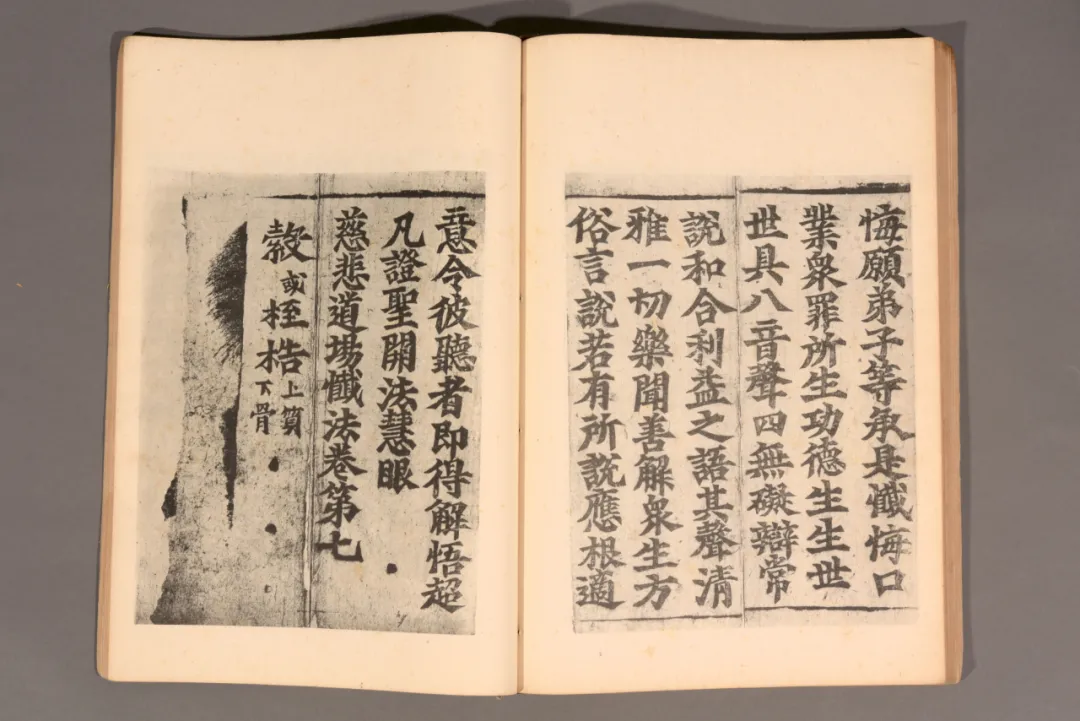 悔願弟子等承是懺悔口
業衆罪所生功德生生世
世具八音聲四無礙辯常
說和合利益之語其聲清
雅一切樂聞善解衆生方
俗言說若有所說應根適
意令彼聽者即得解悟超
凡證聖開法慧眼
慈悲道場懺法卷第七
縠或桎梏上質下骨